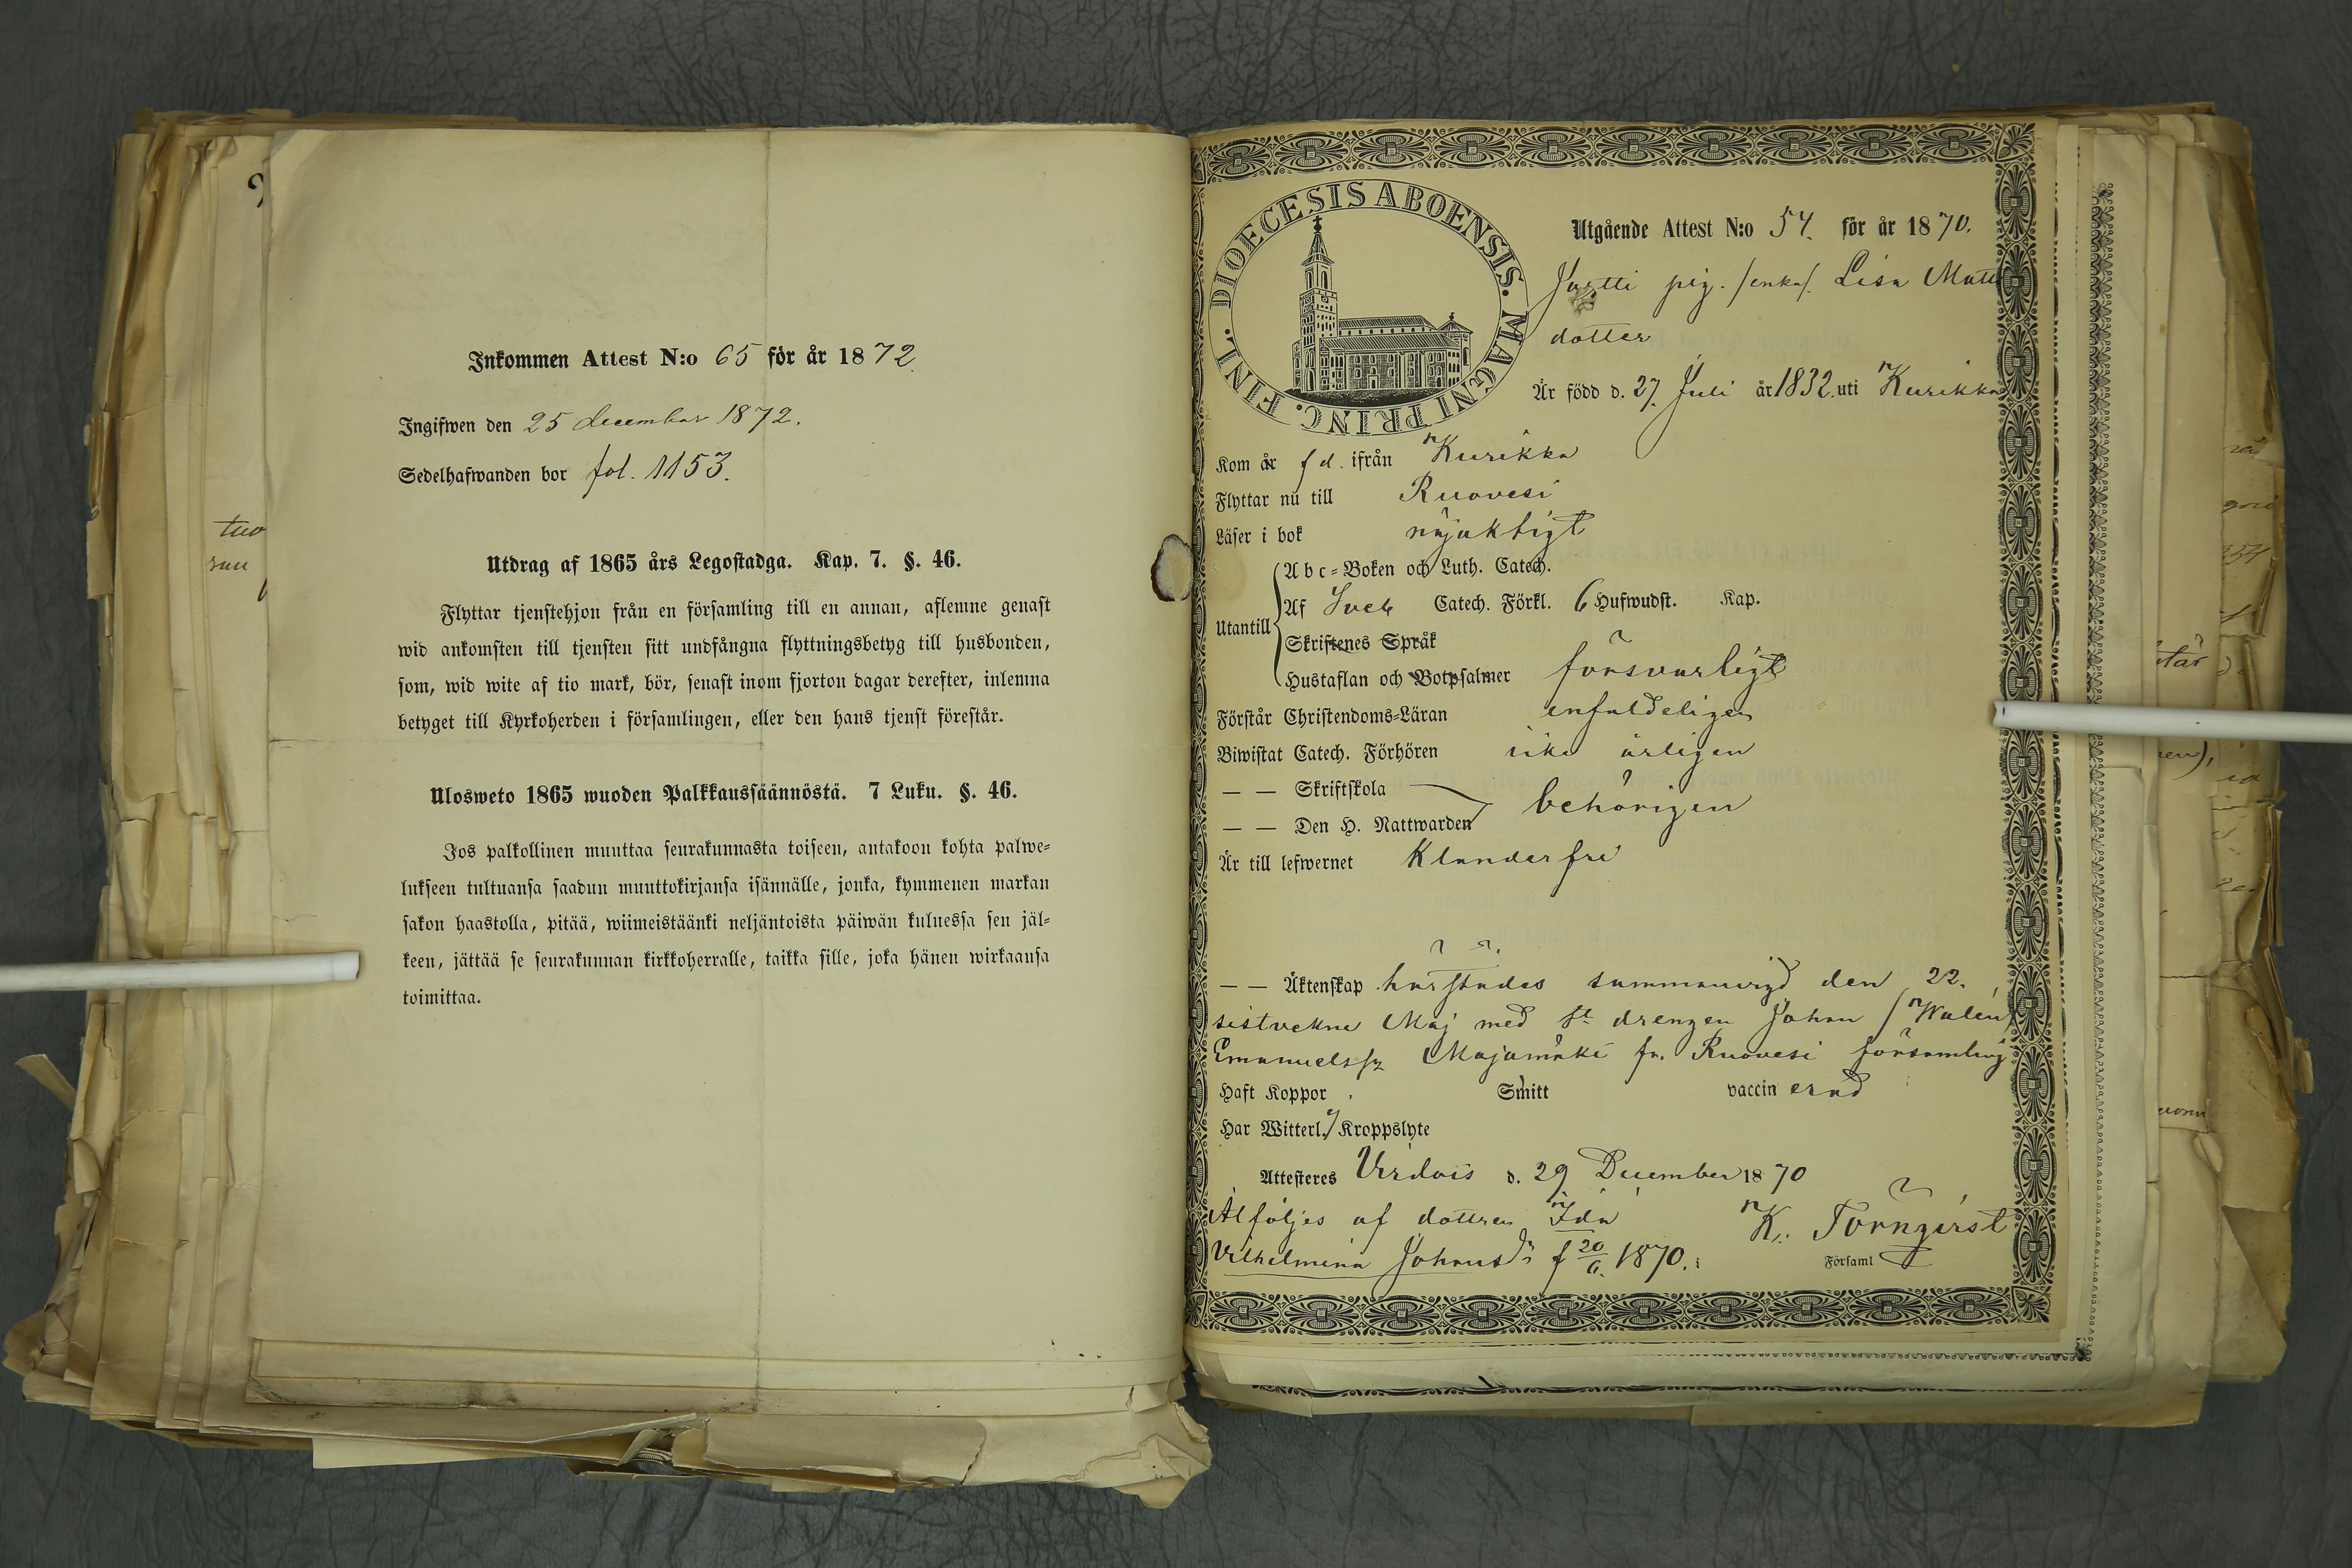 Inkommen Attest N:o 65 för år 1872.
Ingifwen den 25 december 1872.
Sedelhafwanden bor fol. 1153.
Utdrag af 1865 års Legostadga. Kap. 7. §. 46.
Flyttar tjenstehjon från en församling till en annan, aflemne genast
wid ankomsten till tjensten sitt undfångna flyttningsbetyg till husbonden,
som, wid wite af tio mark, bör, senast inom fjorton dagar derefter, inlemna
betyget till Kyrkoherden i församlingen, eller den hans tjenst förestår.
Ulosweto 1865 wuoden Palkkaussäännöstä. 7 Luku. §. 46.
Jos palkollinen muuttaa seurakunnasta toiseen, antakoon kohta palwe-
lukseen tultuansa saadun muuttokirjansa isännälle, jonka, kymmenen markan
sakon haastolla, pitää, wiimeistäänki neljäntoista päiwän kuluessa sen jäl-
keen, jättää se seurakunnan kirkkoherralle, taikka sille, joka hänen wirkaansa
toimittaa.
DIOECESIS ABOENSIS. MAGNI PRINC. FINL.
Utgående Attest N:o 54. för år 1870.
pig. /enka/. Lisa Matts
dotter
Är född d. 27 Juli år 1832. uti Kurikka
Kom år f d. ifrån Kurikka
Flyttar nu till Ruovesi
Läser i bok nöjaktigt
Utantill
Abc-Boken och Luth. Catech.
Af Sveb Catech. Förkl. 6 Hufwudst. Kap.
Skriftenes Språk
Hustaflan och Botpsalmer försvarligt
Förstår Christendoms-Läran enfaldeligen
Biwistat Catech. Förhören icke årligen
— — Skriftskola
— — Den H. Nattwarden behörigen
Är till lefwernet Klanderfri
— — Äktenskap härstädes sammanvigd den 22.
sistvekne Maj med drengen Johan /Walen/
Emanuelss Majamäki fr. Ruovesi församling
Haft Koppor Smitt vaccin erad
Har Witterl. Kroppslyte
Attesteres Virdois d. 29 December 1870
Åtföljes af dottren Ida
Vilhelmina Johansdr f 20/6. 1870.
K. Törnqvist
Församl